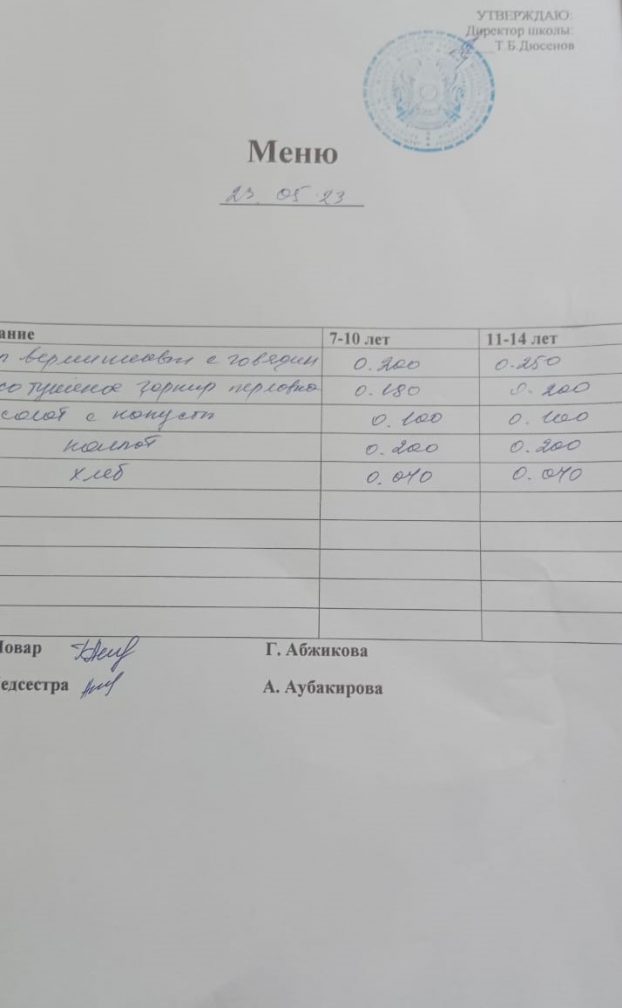 УТВЕРЖДАЮ:
Директор школы:
Т.Б.Дюсенов
Меню
23. 05.23
ание 7-10 лет 11-14 лет
п вермишелевы с говядин 0.200 0.250
со тушеное гарнир перловка 0.180 0.200
солат с капуст 0.100 0.100
компот 0.200 0.200
хлеб 0.040 0.040
Повар Г. Абжикова
едсестра А. Аубакирова